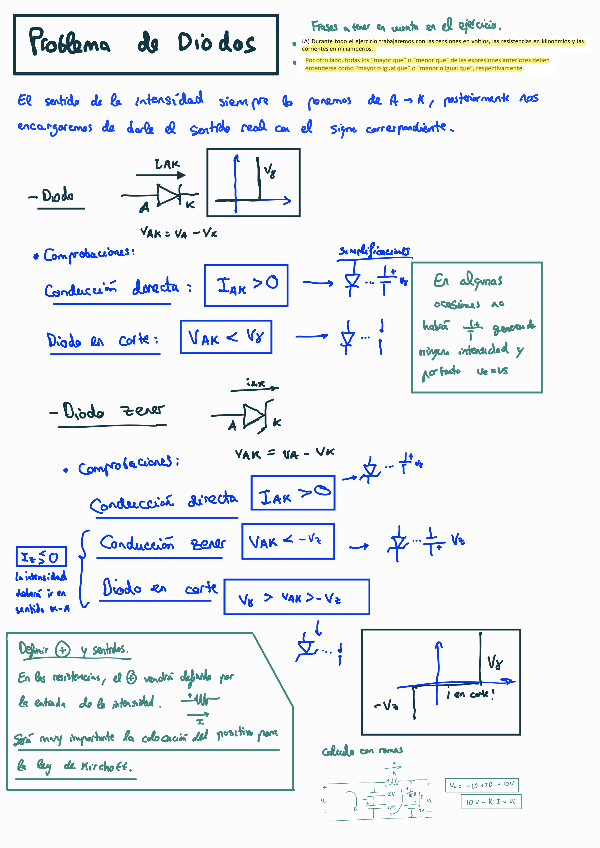 Problema de Diodos
Frases a tener en cuenta en el ejercicio.
(A) Durante todo el ejercicio trabajaremos con las tensiones en voltios, las resistencias en kiloohmios y las
corrientes en miliamperios.
Por otro lado, todos los "mayor que" o "menor que" de las expresiones anteriores deben
entenderse como "mayor o igual que" o "menor o igual que", respectivamente.
El sentido de la intensidad siempre lo ponemos de A → K, posteriormente nos
encargaremos de darle el sentido real con el signo correspondiente.
IAK
Vγ
- Diodo
A K
VAK = VA - VK
• Comprobaciones:
simplificaciones
Conducción directa: IAK > 0
Vγ
Diodo en corte: VAK < Vγ
En algunas
ocasiones no
habrá generando
ninguna intensidad y
por tanto
iAK
- Diodo zener
A K
VAK = VA - VK
• Comprobaciones:
Conducción directa IAK > 0
Conducción zener VAK < -Vz
Vz
Iz ≤ 0
La intensidad
deberá ir en
sentido K-A
Diodo en corte Vγ > VAK > -Vz
Definir + y sentidos.
En las resistencias, el + vendrá definido por
la entrada de la intensidad.
I
Será muy importante la colocación del positivo para
la ley de Kirchoff.
Vγ
-Vz
¡en corte!
Calculo con ramas